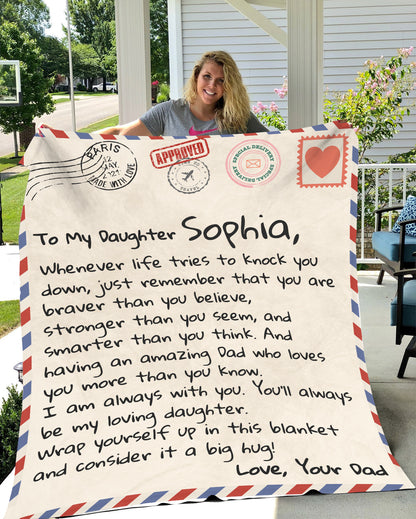 PARIS
MADE WITH LOVE
APPROVED
SPECIAL DELIVERY
SPECIAL DELIVERY
To My Daughter Sophia,
Whenever life tries to knock you
down, just remember that you are
braver than you believe,
stronger than you seem, and
smarter than you think. And
having an amazing Dad who loves
you more than you know.
I am always with you. You'll always
be my loving daughter.
Wrap yourself up in this blanket
and consider it a big hug!
Love, Your Dad